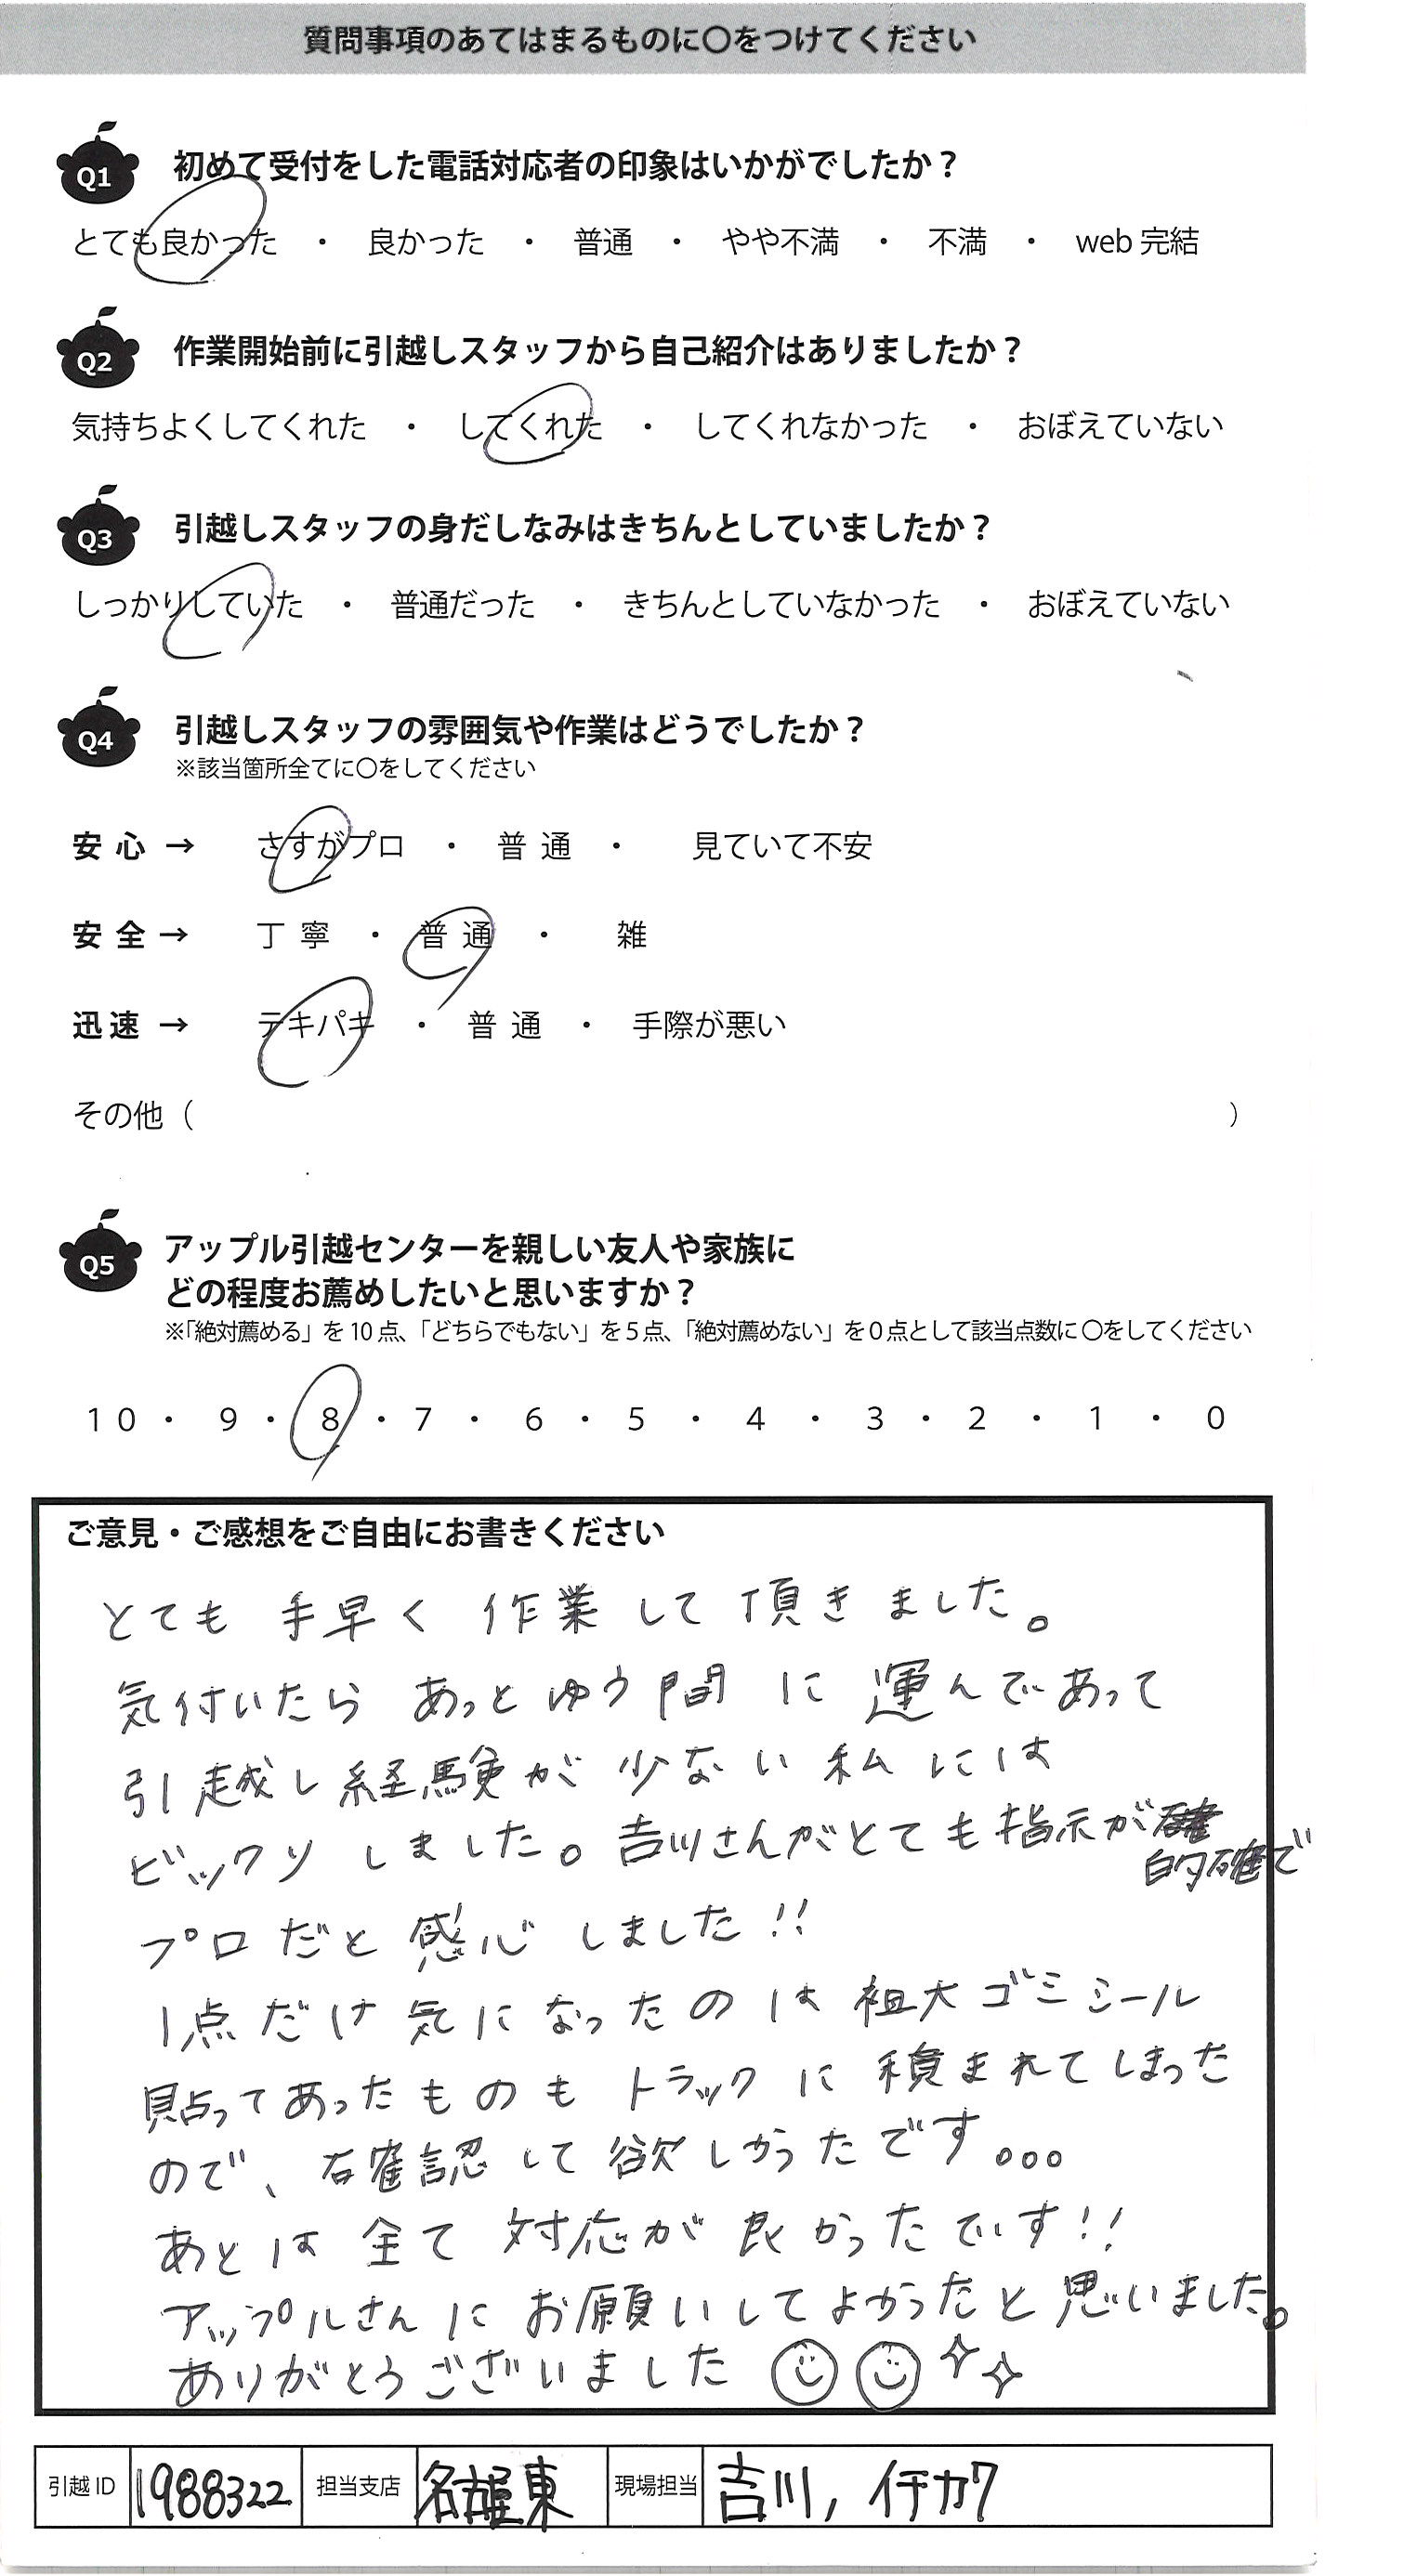 質問事項のあてはまるものに〇をつけてください
Q1 初めて受付をした電話対応者の印象はいかがでしたか？
とても良かった ・ 良かった ・ 普通 ・ やや不満 ・ 不満 ・ web 完結
Q2 作業開始前に引越しスタッフから自己紹介はありましたか？
気持ちよくしてくれた ・ してくれた ・ してくれなかった ・ おぼえていない
Q3 引越しスタッフの身だしなみはきちんとしていましたか？
しっかりしていた ・ 普通だった ・ きちんとしていなかった ・ おぼえていない
Q4 引越しスタッフの雰囲気や作業はどうでしたか？
※該当箇所全てに〇をしてください
安心 → さすがプロ ・ 普通 ・ 見ていて不安
安全 → 丁寧 ・ 普通 ・ 雑
迅速 → テキパキ ・ 普通 ・ 手際が悪い
その他（ ）
Q5 アップル引越センターを親しい友人や家族に
どの程度お薦めしたいと思いますか？
※「絶対薦める」を10点、「どちらでもない」を5点、「絶対薦めない」を0点として該当点数に〇をしてください
10 ・ 9 ・ 8 ・ 7 ・ 6 ・ 5 ・ 4 ・ 3 ・ 2 ・ 1 ・ 0
ご意見・ご感想をご自由にお書きください
とても 手早く 作業して頂きました。
気付いたら あっとゆう間に運んであって
引越し経験が少ない私には
ビックリしました。吉川さんがとても指示が
的確で
プロだと感心しました!!
1点だけ気になったのは粗大ゴミシール
貼ってあったものもトラックに積まれてしまった
ので、確認して欲しかったです。。。
あとは全て対応が良かったです!!
アップルさんにお願いしてよかったと思いました。
ありがとうございました
引越ID 1988322 担当支店 名古屋東 現場担当 吉川, イチカワ